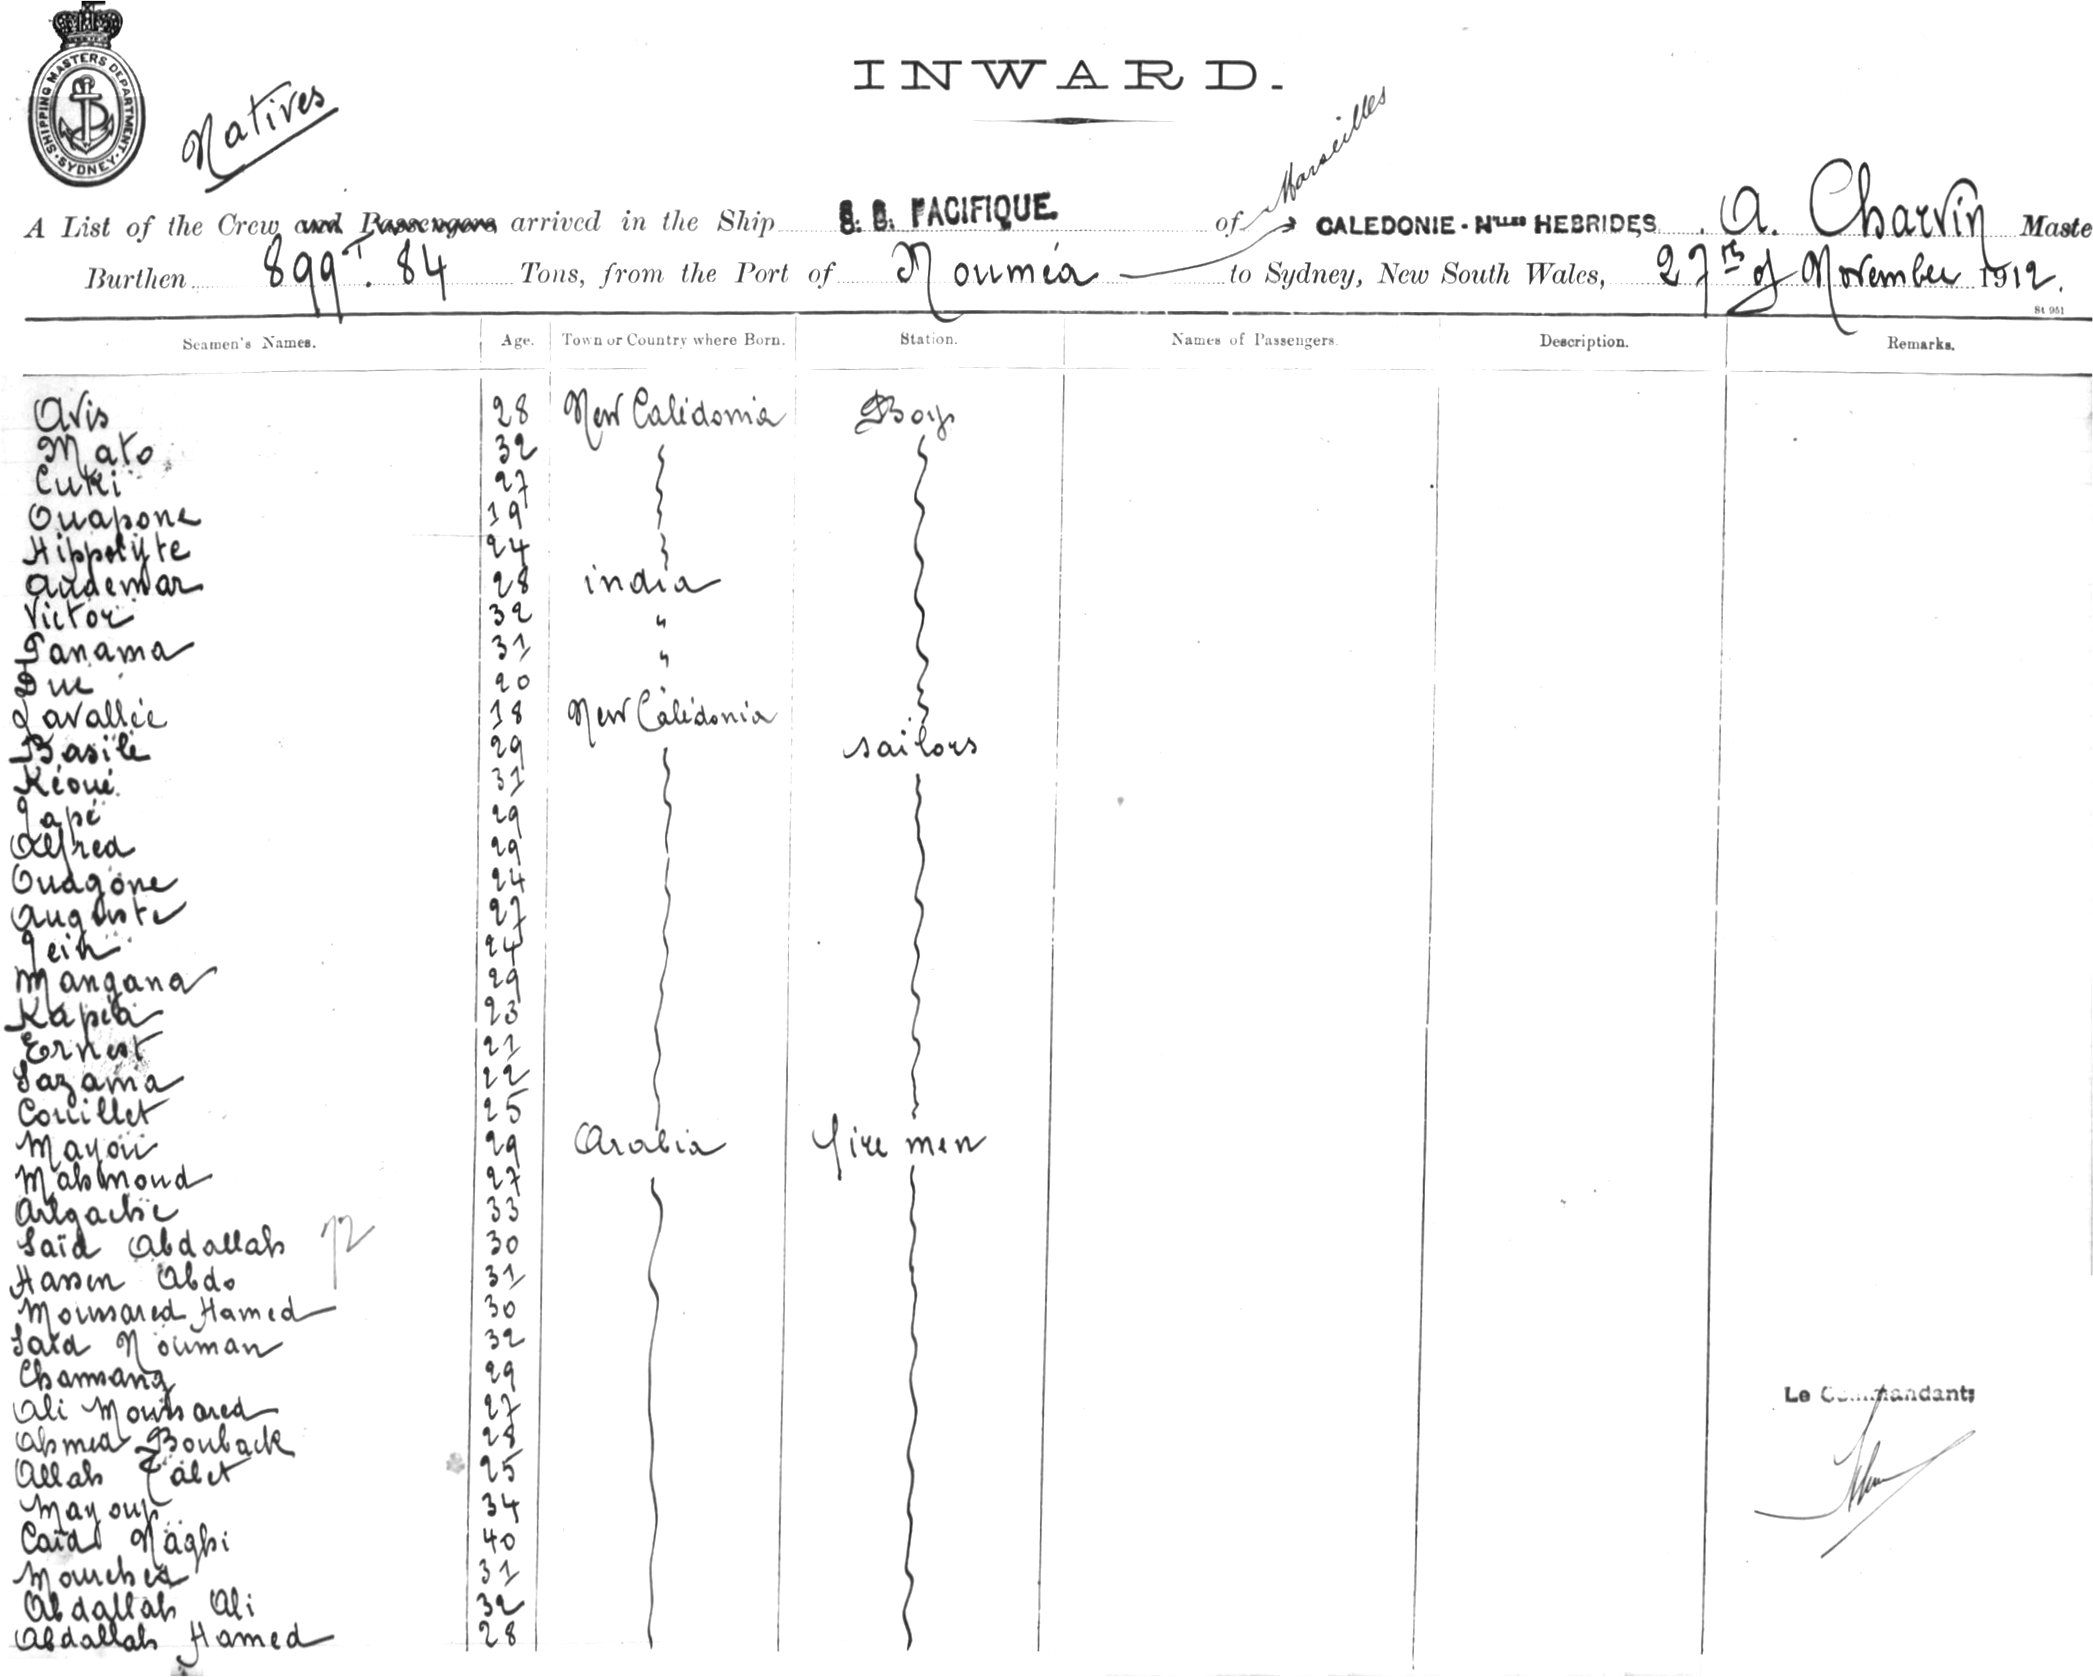 SHIPPING MASTERS DEPARTMENT SYDNEY
Natives
INWARD.
Marseilles
A List of the Crew and Passengers arrived in the Ship S. S. PACIFIQUE. of CALEDONIE - Nlles HEBRIDES. A. Charvin Maste
Burthen 899T. 84 Tons, from the Port of Nouméa to Sydney, New South Wales, 27th of November 1912.
St 951
Seamen's Names. Age. Town or Country where Born. Station. Names of Passengers. Description. Remarks.
Avis 28 New Calédonia Boys
Mato 32
Cuki 27
Ouapone 19
Hippolyte 24
Audemar 28 india
Victor 32 "
Panama 31 "
Duc 20
Lavallée 18 New Calédonia
Basile 29 sailors
Kéoué 31
Japé 29
Alfred 29
Ouagone 24
Auguste 27
Jein 24
Mangana 29
Kapéa 23
Ernest 21
Sazama 22
Couillet 25
Mayou 29 Arabia fire men
Mahmoud 27
Argache 33
Saïd Abdallah 30
Hassen Abdo 31
Moussared Hamed 30
Saïd Nouman 32
Chamsang 29
Ali Moussared 27
Ahmed Bouback 28
Allah Tálet 25
Mayoup 34
Caïd Naghi 40
Mourched 31
Abdallah Ali 32
Abdallah Hamed 28
Le Commandant;